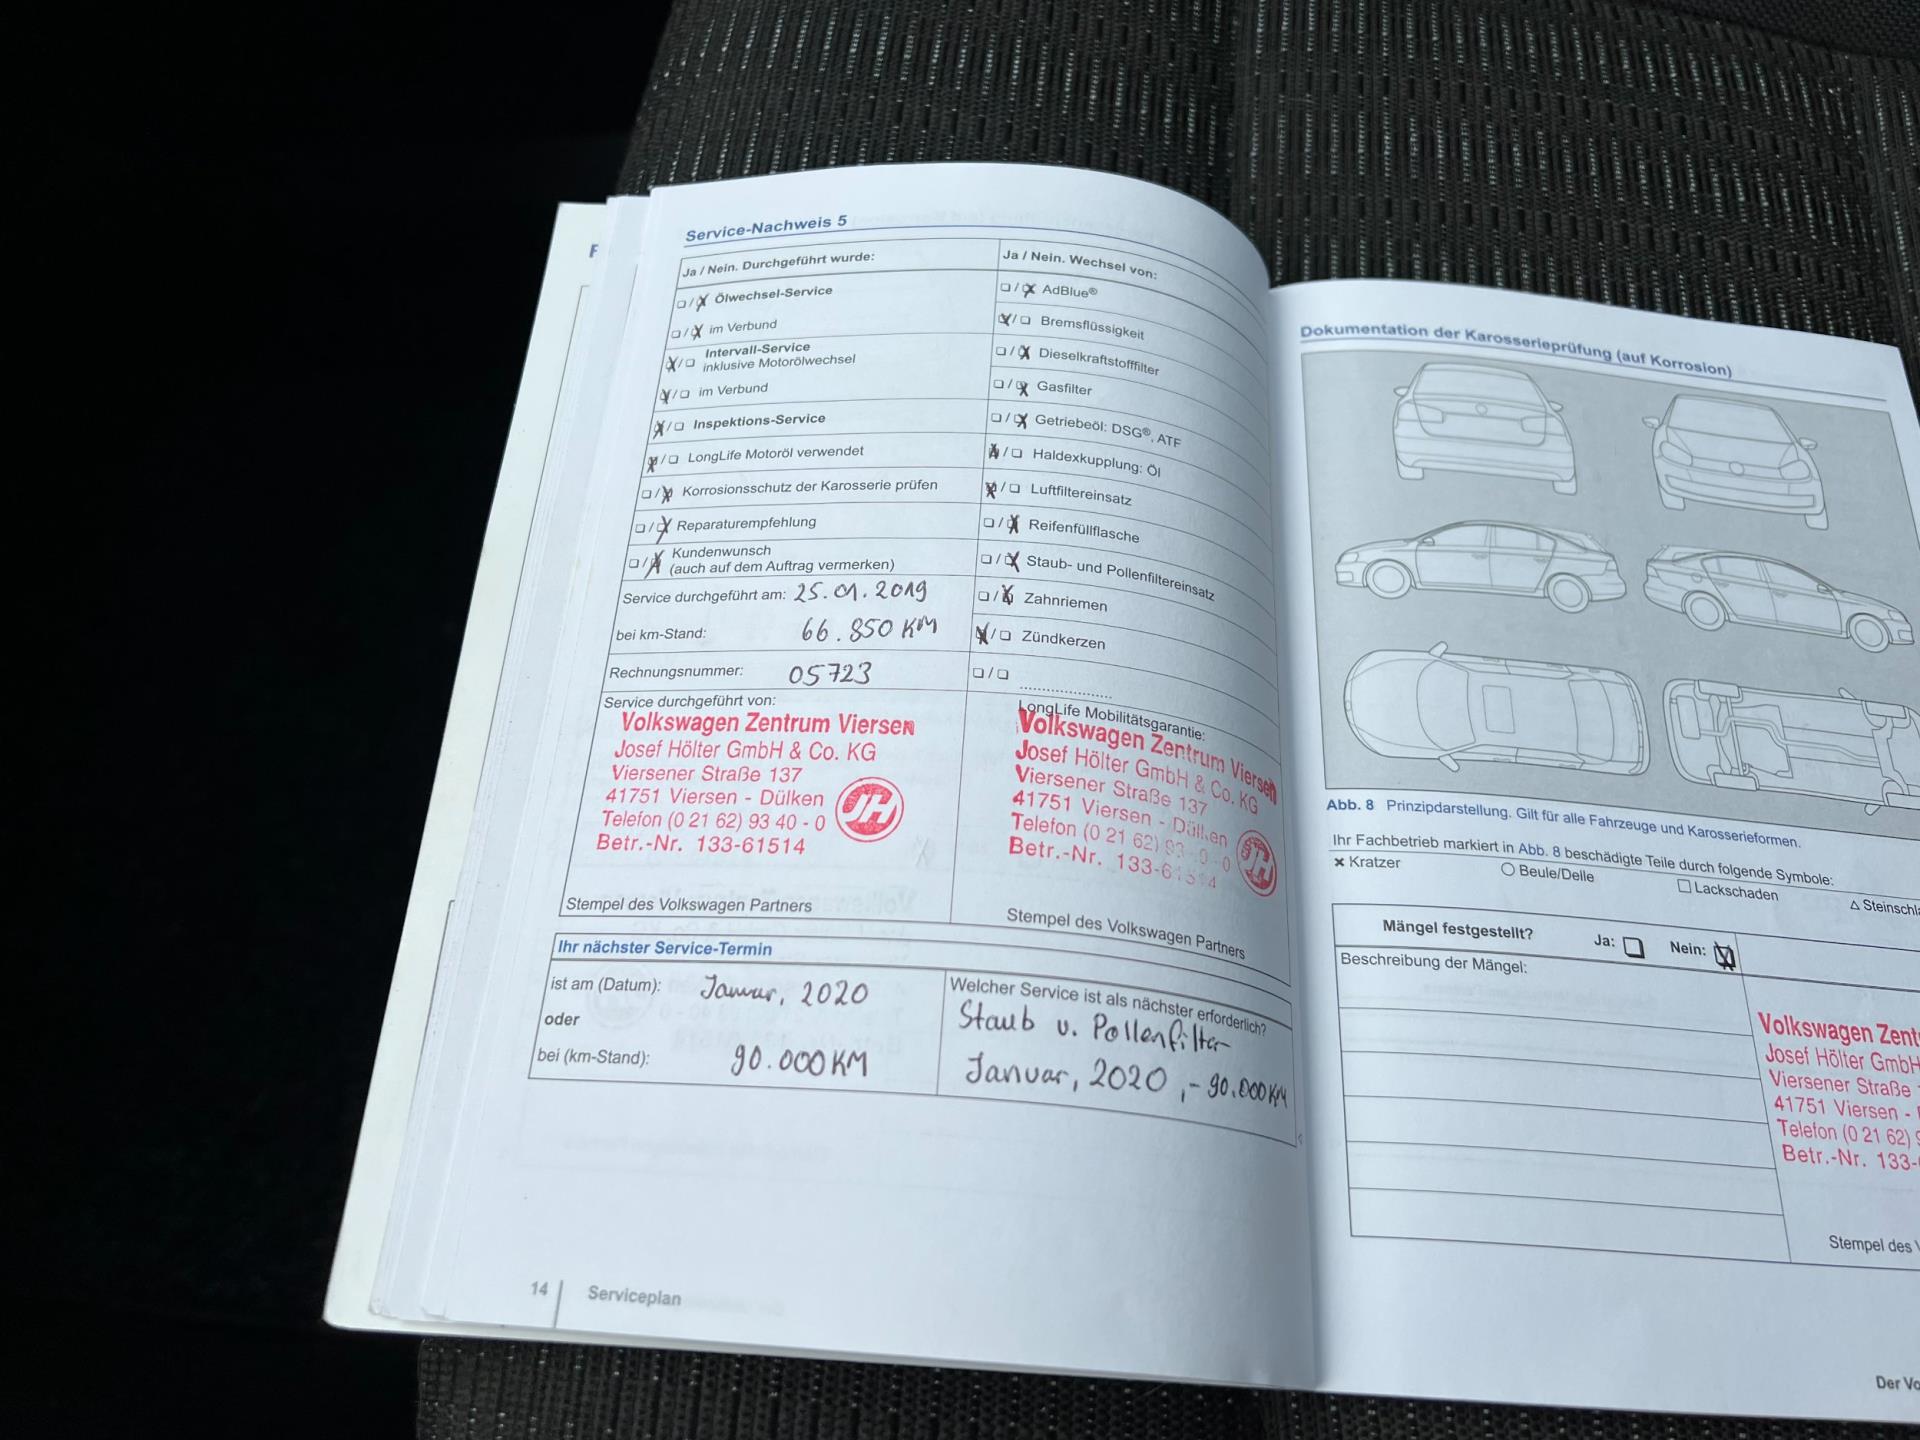 F
Service-Nachweis 5
Ja / Nein. Durchgeführt wurde:
Ölwechsel-Service
im Verbund
Intervall-Service
inklusive Motorölwechsel
im Verbund
Inspektions-Service
LongLife Motoröl verwendet
Korrosionsschutz der Karosserie prüfen
Reparaturempfehlung
Kundenwunsch
(auch auf dem Auftrag vermerken)
Service durchgeführt am: 25.01.2019
bei km-Stand: 66.850 KM
Rechnungsnummer: 05723
Service durchgeführt von:
Volkswagen Zentrum Viersen
Josef Hölter GmbH & Co. KG
Viersener Straße 137
41751 Viersen - Dülken
Telefon (0 21 62) 93 40 - 0
Betr.-Nr. 133-61514
JH
Stempel des Volkswagen Partners
Ja / Nein. Wechsel von:
AdBlue®
Bremsflüssigkeit
Dieselkraftstofffilter
Gasfilter
Getriebeöl: DSG®, ATF
Haldexkupplung: Öl
Luftfiltereinsatz
Reifenfüllflasche
Staub- und Pollenfiltereinsatz
Zahnriemen
Zündkerzen
LongLife Mobilitätsgarantie:
Volkswagen Zentrum Viersen
Josef Hölter GmbH & Co. KG
Viersener Straße 137
41751 Viersen - Dülken
Telefon (0 21 62) 93 40 - 0
Betr.-Nr. 133-61514
JH
Stempel des Volkswagen Partners
Ihr nächster Service-Termin
ist am (Datum): Januar, 2020
oder
bei (km-Stand): 90.000 KM
Welcher Service ist als nächster erforderlich?
Staub u. Pollenfilter
Januar, 2020 ,- 90.000 KM
14 Serviceplan
Dokumentation der Karosserieprüfung (auf Korrosion)
Abb. 8 Prinzipdarstellung. Gilt für alle Fahrzeuge und Karosserieformen.
Ihr Fachbetrieb markiert in Abb. 8 beschädigte Teile durch folgende Symbole:
× Kratzer ○ Beule/Delle □ Lackschaden △ Steinschla
Mängel festgestellt? Ja: Nein:
Beschreibung der Mängel:
Volkswagen Zent
Josef Hölter GmbH
Viersener Straße
41751 Viersen -
Telefon (0 21 62) 9
Betr.-Nr. 133-
Stempel des V
Der Vo